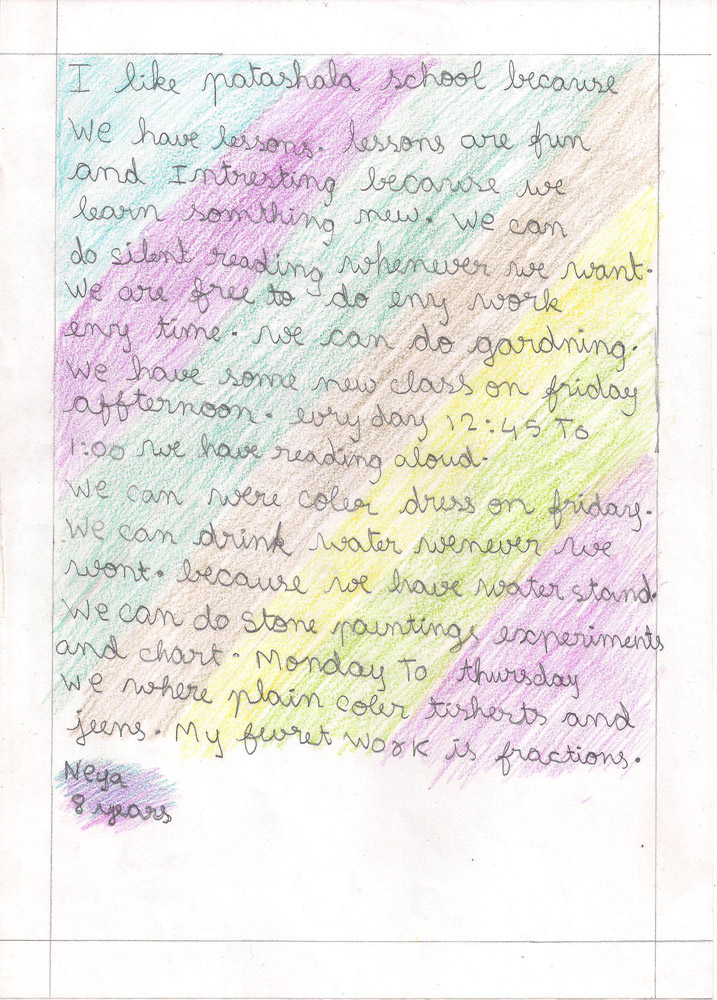 I like patashala school because
We have lessons. lessons are fun
and Intresting because we
learn somthing new. We can
do silent reading whenever we want.
We are free to do eny work
eny time. we can do gardning.
We have some new class on friday
affternoon. evry day 12:45 To
1:00 we have reading aloud.
We can were coler dress on friday.
We can drink water wenever we
wont. because we have water stand.
We can do stone paintings experiments
and chart. Monday To thursday
We where plain coler tisherts and
jeens. My fevret work is fractions.
Neya
8 years